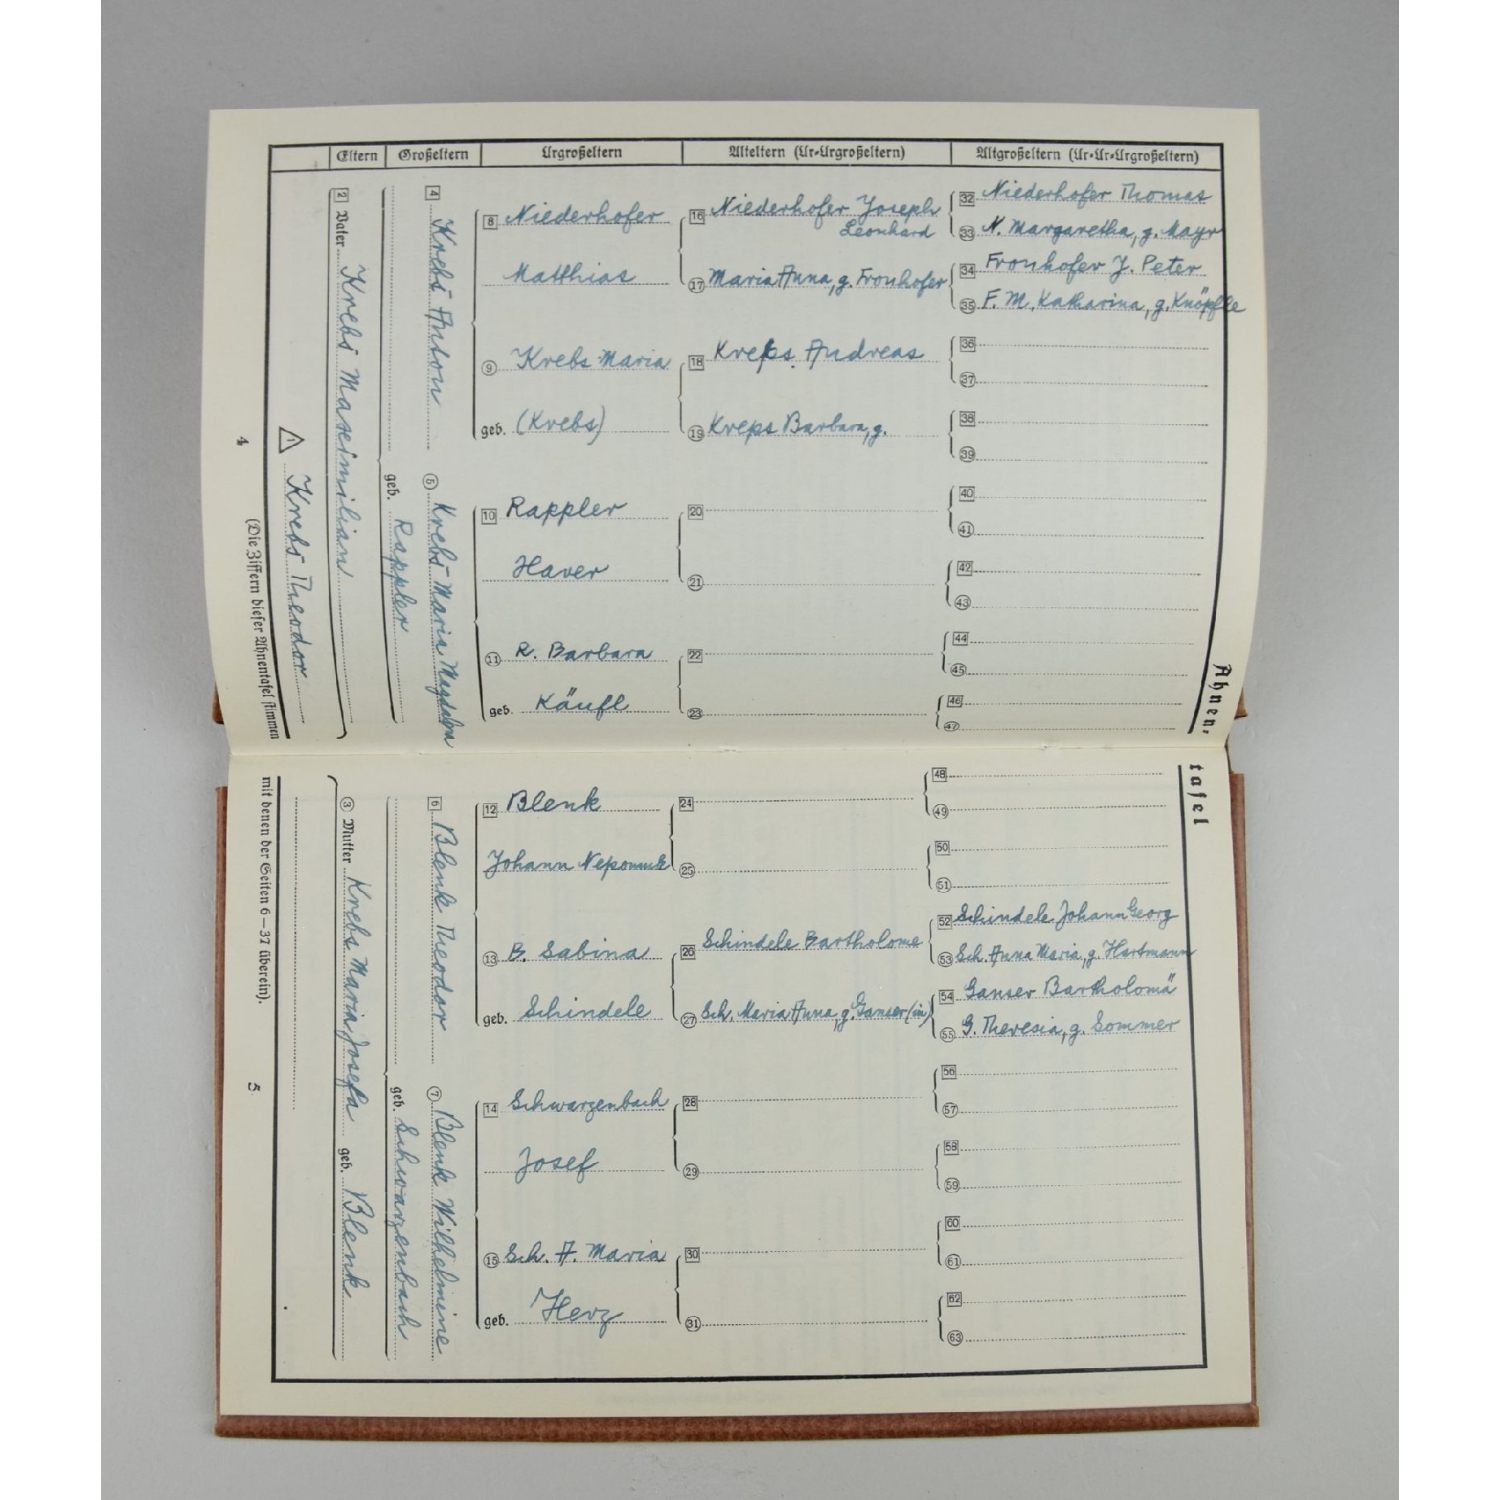 Eltern Großeltern Urgroßeltern Alteltern (Ur-Urgroßeltern) Altgroßeltern (Ur-Ur-Urgroßeltern)
Ahnen-
1 Krebs Theodor
2 Vater Krebs Maximilian
4 Krebs Anton
5 Krebs Maria Magdalena
geb. Rappler
8 Niederhofer
Matthias
9 Krebs Maria
geb. (Krebs)
10 Rappler
Xaver
11 R. Barbara
geb. Käufl
16 Niederhofer Joseph
Leonhard
17 Maria Anna, g. Fronhofer
18 Kreps Andreas
19 Kreps Barbara, g.
20
21
22
23
32 Niederhofer Thomas
33 N. Margaretha, g. Mayr
34 Fronhofer J. Peter
35 F. M. Katharina, g. Knöpfle
36
37
38
39
40
41
42
43
44
45
46
47
4
(Die Ziffern dieser Ahnentafel stimmen
tafel
3 Mutter Krebs Maria Josefa geb. Blenk
6 Blenk Theodor
7 Blenk Wilhelmine
geb. Schwarzenbach
12 Blenk
Johann Nepomuk
13 B. Sabina
geb. Schindele
14 Schwarzenbach
Josef
15 Sch. A. Maria
geb. Herz
24
25
26 Schindele Bartholome
27 Sch. Maria Anna, g. Ganser(in)
28
29
30
31
48
49
50
51
52 Schindele Johann Georg
53 Sch. Anna Maria, g. Hartmann
54 Ganser Bartholomä
55 G. Theresia, g. Sommer
56
57
58
59
60
61
62
63
mit denen der Seiten 6—37 überein).
5